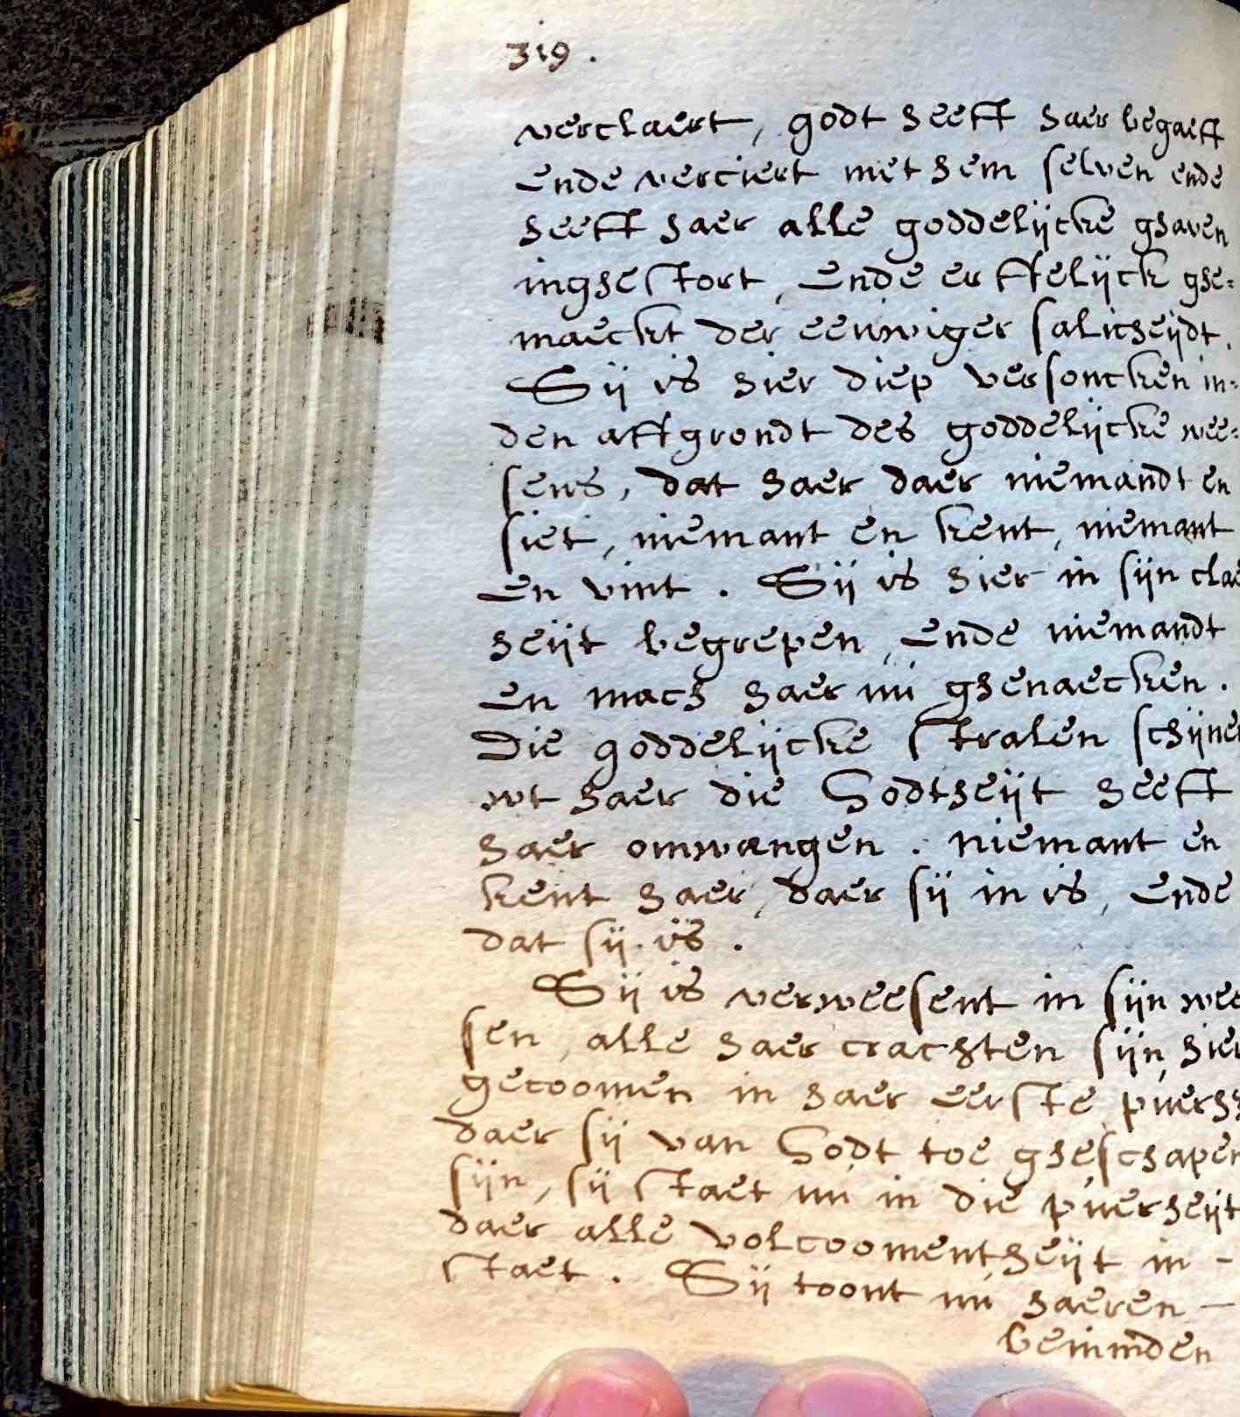 319.
verclaert, godt heeft haer begaeft
ende verciert met hem selven ende
heeft haer alle goddelijcke ghaven
inghestort, ende erffelijck ghe=
maeckt der eeuwiger salicheijdt.
Sij is hier diep versoncken in=
den affgrondt des goddelijcke wee=
sens, dat haer daer niemandt en
siet, niemant en kent, niemant
en vint. Sij is hier in sijn clae
heijt begrepen, ende niemandt
en mach haer nu ghenaecken.
Die goddelijcke stralen schijne
wt haer die Godtheijt heeft
haer omvangen. niemant en
kent haer, daer sij in is, ende
dat sij is.
Sij is verweesent in sijn wee
sen, alle haer crachten sijn hier
gecoomen in haer eerste puerh
daer sij van Godt toe gheschapen
sijn, sij staet nu in die puerheijt
daer alle volcoomentheijt in -
staet. Sij toont nu haeren -
beminden